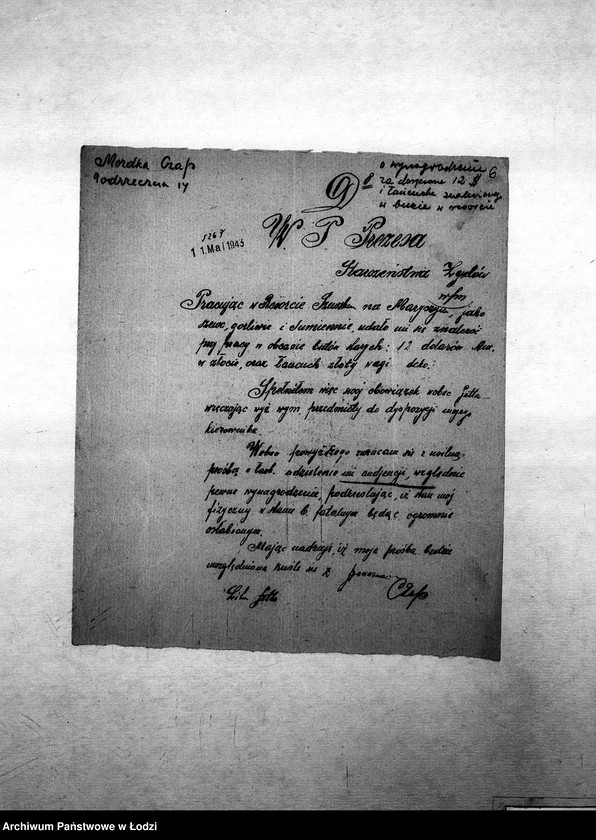 Mordka Czap
Podrzeczna 14
o wynagrodzenie 6
za doręczone 12 $
i łańcuszek znaleziony
w bucie w resorcie
D
1267
11. Mai 1943
W P Prezesa
Starszeństwa Żydów
w/m
Pracując w Resorcie na Marysinie, jako
szewc, gorliwie i sumiennie, udało mi się znaleźć
przy pracy w obcasie butów starych: 12 dolarów Am.
w złocie, oraz łańcuch złoty wagi deko.
Spełniłem więc swój obowiązek wobec Getta
wręczając wyż wym. przedmioty do dyspozycji mojego
kierownika.
Wobec powyższego zwracam się z usilną
prośbą o łask. udzielenie mi audjencji, względnie
pewne wynagrodzenie, podkreślając, iż stan mój
fizyczny w stanie b. fatalnym będąc ogromnie
osłabionym.
Mając nadzieję, iż moja prośba będzie
uwzględniona kreślę się z poważaniem
Lit. Getto
Czap.
Archiwum Państwowe w Łodzi